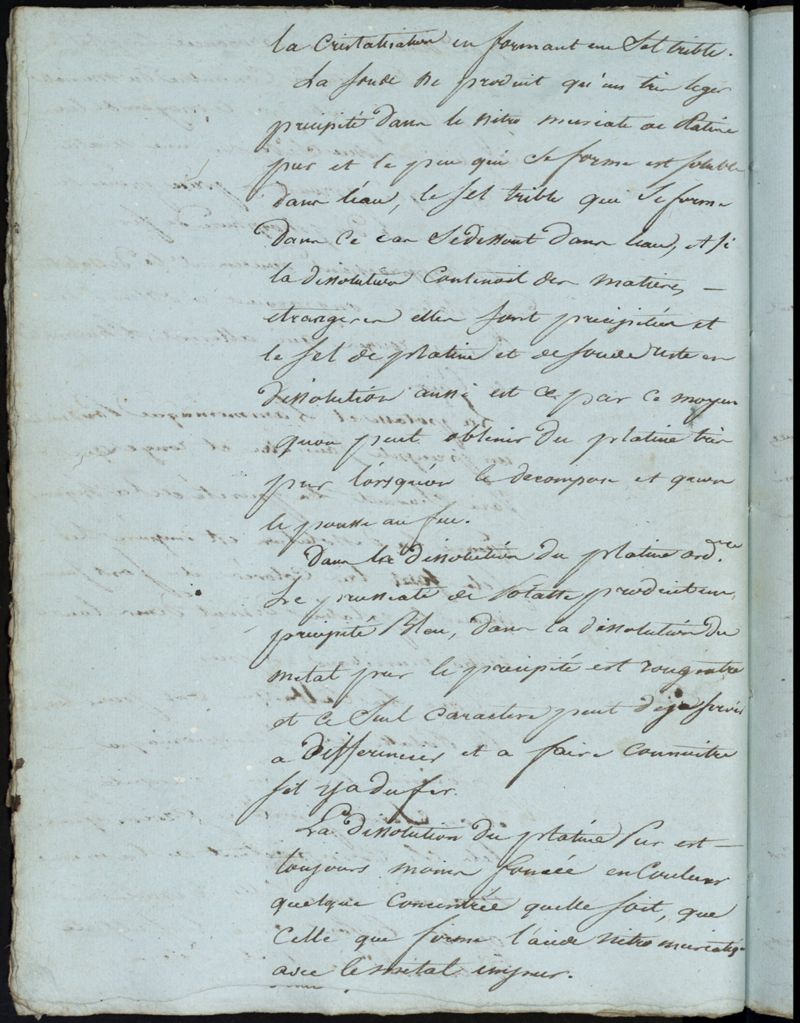 la Cristalisation en formant un Sel trible.
La soude ne produit qu'un très leger
precipité dans le nitro muriate de Platine
pur et le peu qui se forme est soluble
dans l'eau, le sel trible qui se forme
dans ce cas se dissout dans l'eau, et si
la dissolution Contenoit des matieres —
etrangeres elles sont precipitées et
le sel de platine et de soude reste en
dissolution aussi est ce par ce moyen
quon peut obtenir du platine très
pur lorsqu'on le decompose et quon
le pousse au feu.
Dans la dissolution du platine ord.re
Le prussiate de Potasse produit un
precipité Bleu, dans la dissolution du
metal pur le precipité est rougeatre
et ce seul caractere peut deja servir
a differencier et a faire connoitre
sil y a du fer.
La dissolution du platine Pur est —
toujours moins foncée en Couleur
quelque Concentrée quelle soit, que
Celle que forme l'acide nitro muriatiq.
avec le metal impur.